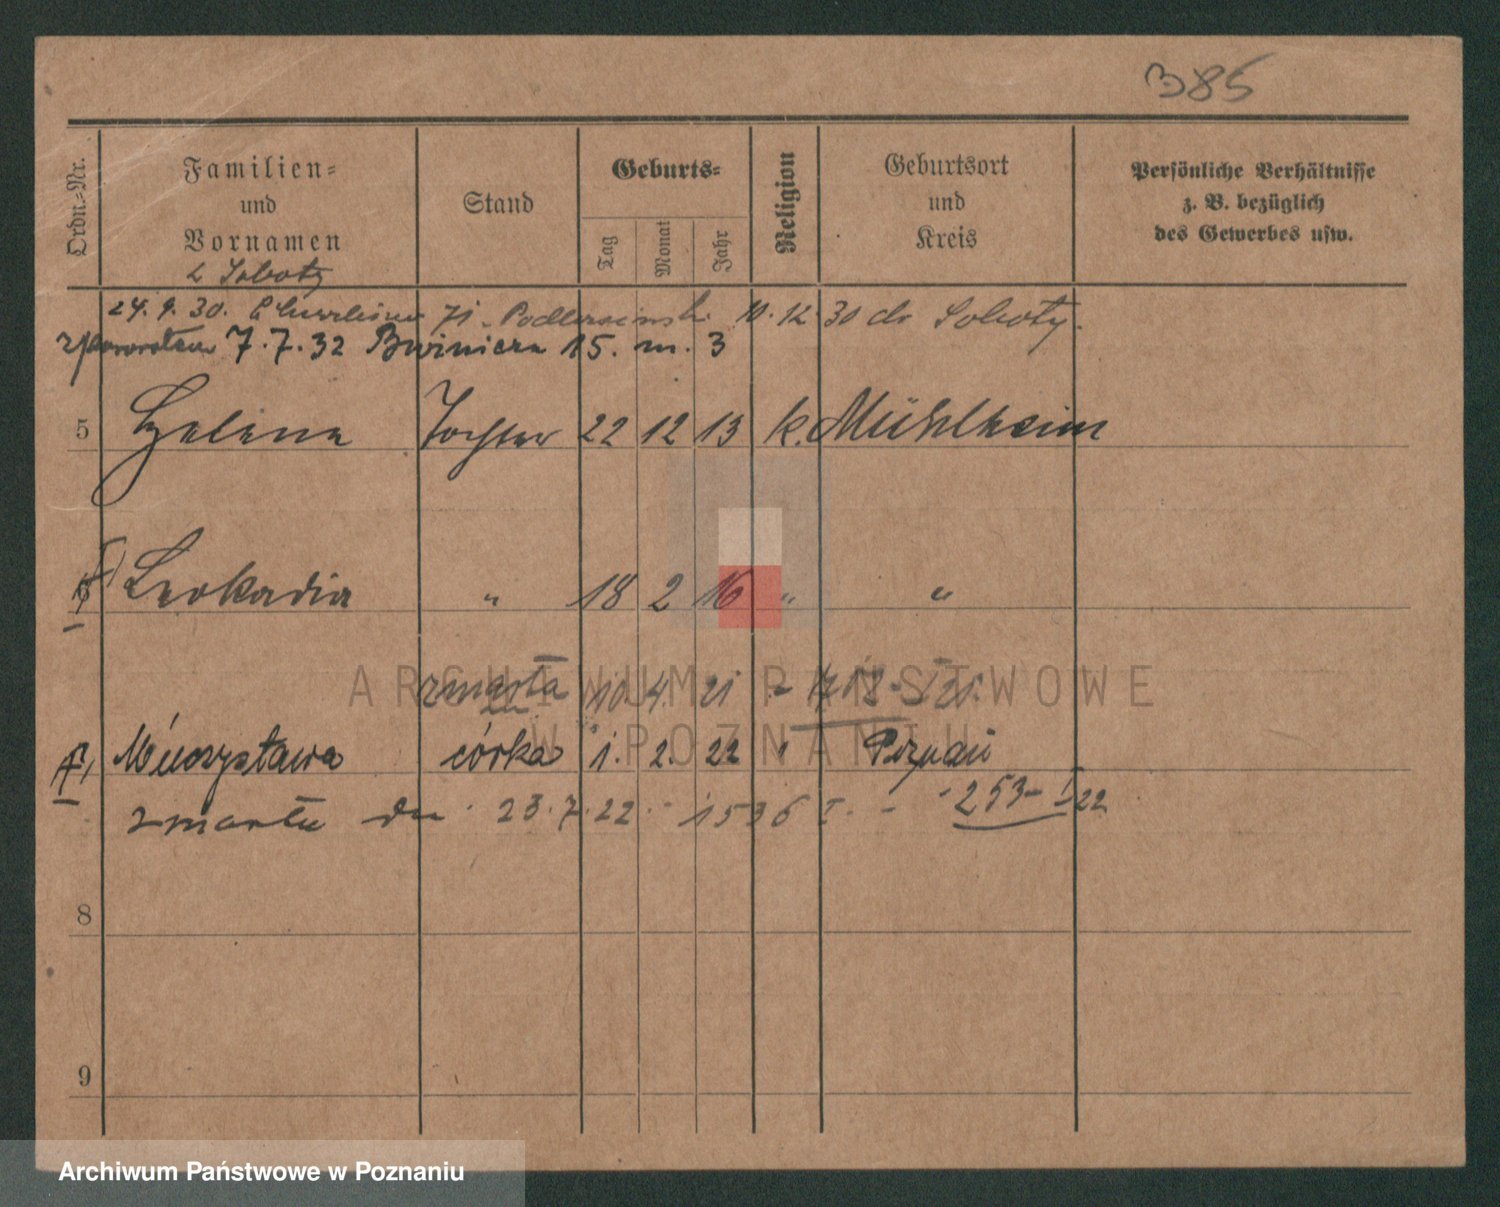 385
Ordn.=Nr.
Familien=
und
Vornamen
Stand
Geburts=
Tag
Monat
Jahr
Religion
Geburtsort
und
Kreis
Persönliche Verhältnisse
z. B. bezüglich
des Gewerbes usw.
z Soboty
24. 9. 30. 71 10. 12 30 do Soboty.
7. 7. 32 15. m. 3
5 Helene Tochter 22 12 13 k. Mühlheim
6 Leokadia " 18 2 16 " "
zmarła 10. 4. 21
Mieczysława córka 1. 2. 22 " Poznań
zmarła dn. 23. 7. 22 1536 I. - 253 - I 22
8
9
ARCHIWUM PAŃSTWOWE
W POZNANIU
Archiwum Państwowe w Poznaniu